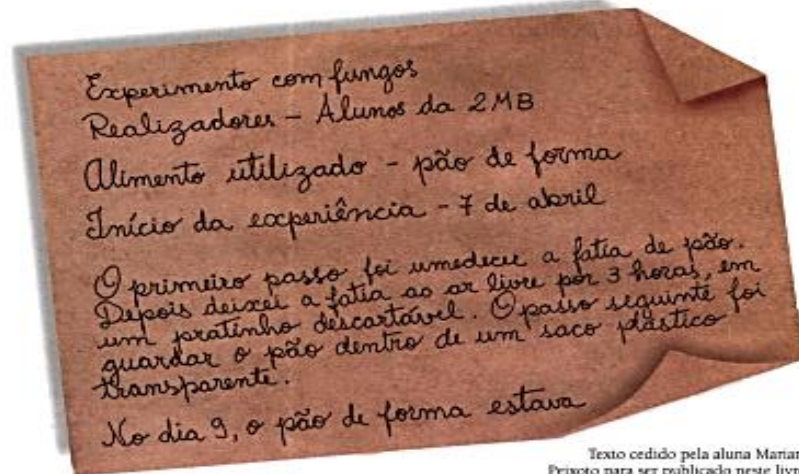 Experimento com fungos
Realizadores - Alunos da 2MB
Alimento utilizado - pão de forma
Início da experiência - 7 de abril
O primeiro passo foi umedecer a fatia de pão.
Depois deixei a fatia ao ar livre por 3 horas, em
um pratinho descartável. O passo seguinte foi
guardar o pão dentro de um saco plástico
transparente.
No dia 9, o pão de forma estava
Texto cedido pela aluna Marian
Peixoto para ser publicado neste livr